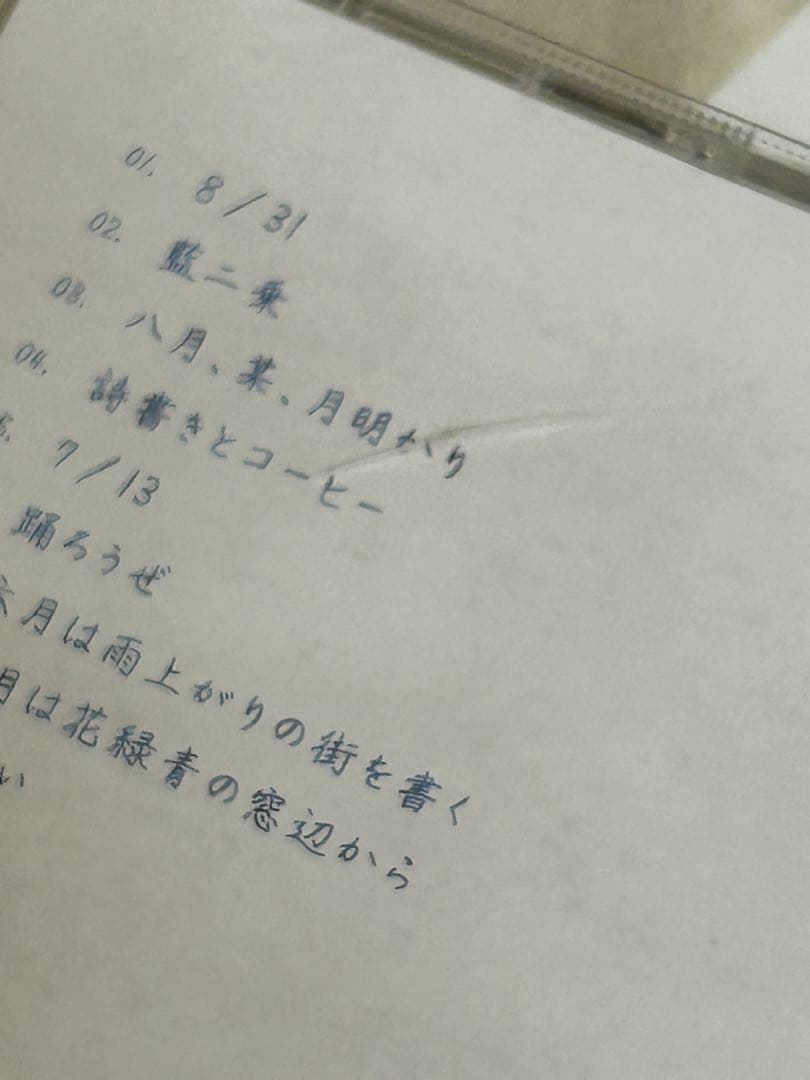 01. 8/31
02. 藍二乗
03. 八月、某、月明かり
04. 詩書きとコーヒー
5. 7/13
踊ろうぜ
六月は雨上がりの街を書く
月は花緑青の窓辺から
い